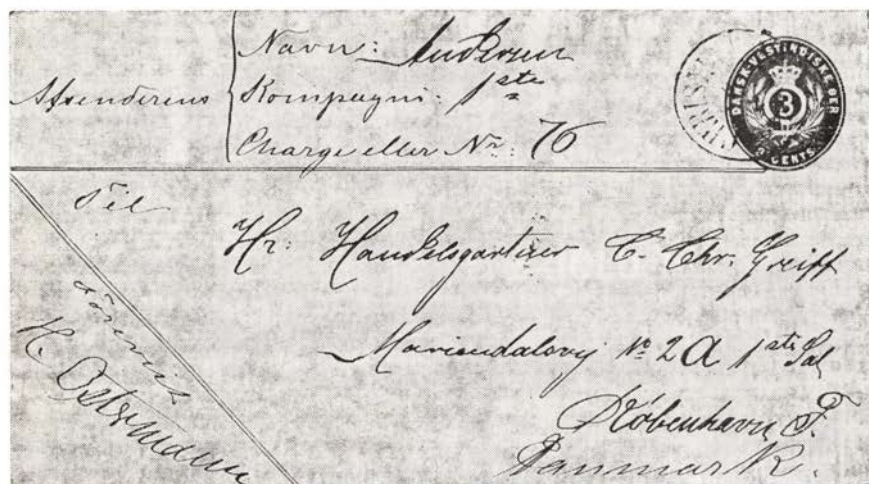 Afsenderens
Navn: Andersen
Kompagni: 1ste
Charge eller Nr: 76
DANSK-VESTINDISKE ØER
3
3 CENTS
Til
Hr: Handelsgartner C. Chr. Greiff
Mariendalsvej No 2A 1ste Sal
København, F.
Danmark.
H. Ostermann